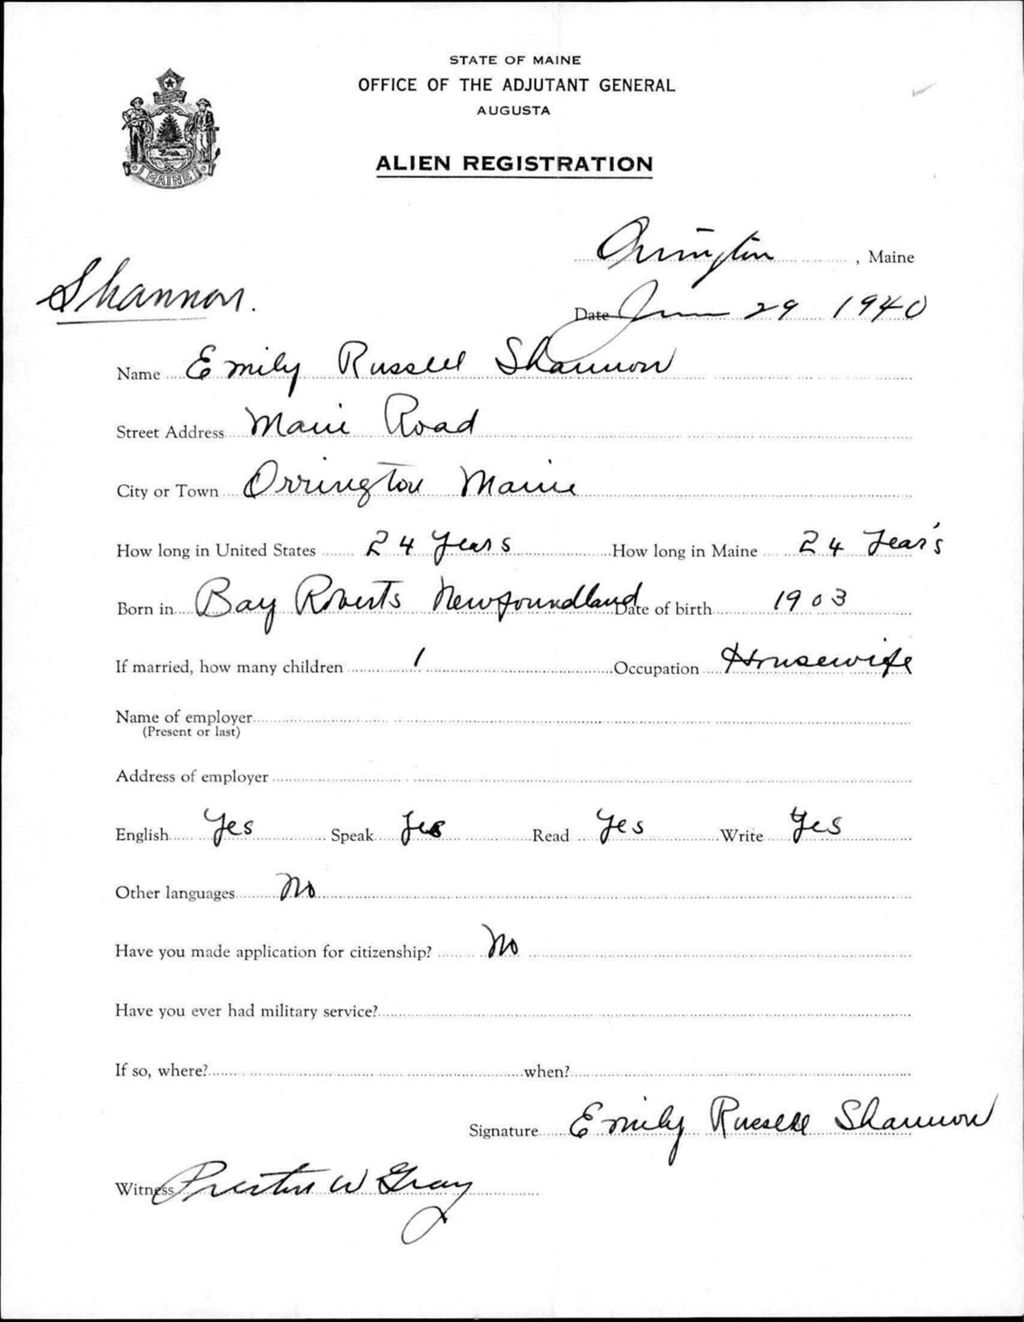 STATE OF MAINE
OFFICE OF THE ADJUTANT GENERAL
AUGUSTA
ALIEN REGISTRATION
MAINE
Orrington, Maine
Shannon.
Date June 29 1940
Name Emily Russell Shannon
Street Address Main Road
City or Town Orrington Maine
How long in United States 24 Years How long in Maine 24 Years
Born in Bay Roberts Newfoundland Date of birth 1903
If married, how many children 1 Occupation Housewife
Name of employer
(Present or last)
Address of employer
English Yes Speak Yes Read Yes Write Yes
Other languages No
Have you made application for citizenship? No
Have you ever had military service?
If so, where? when?
Signature Emily Russell Shannon
Witness Preston W Gray